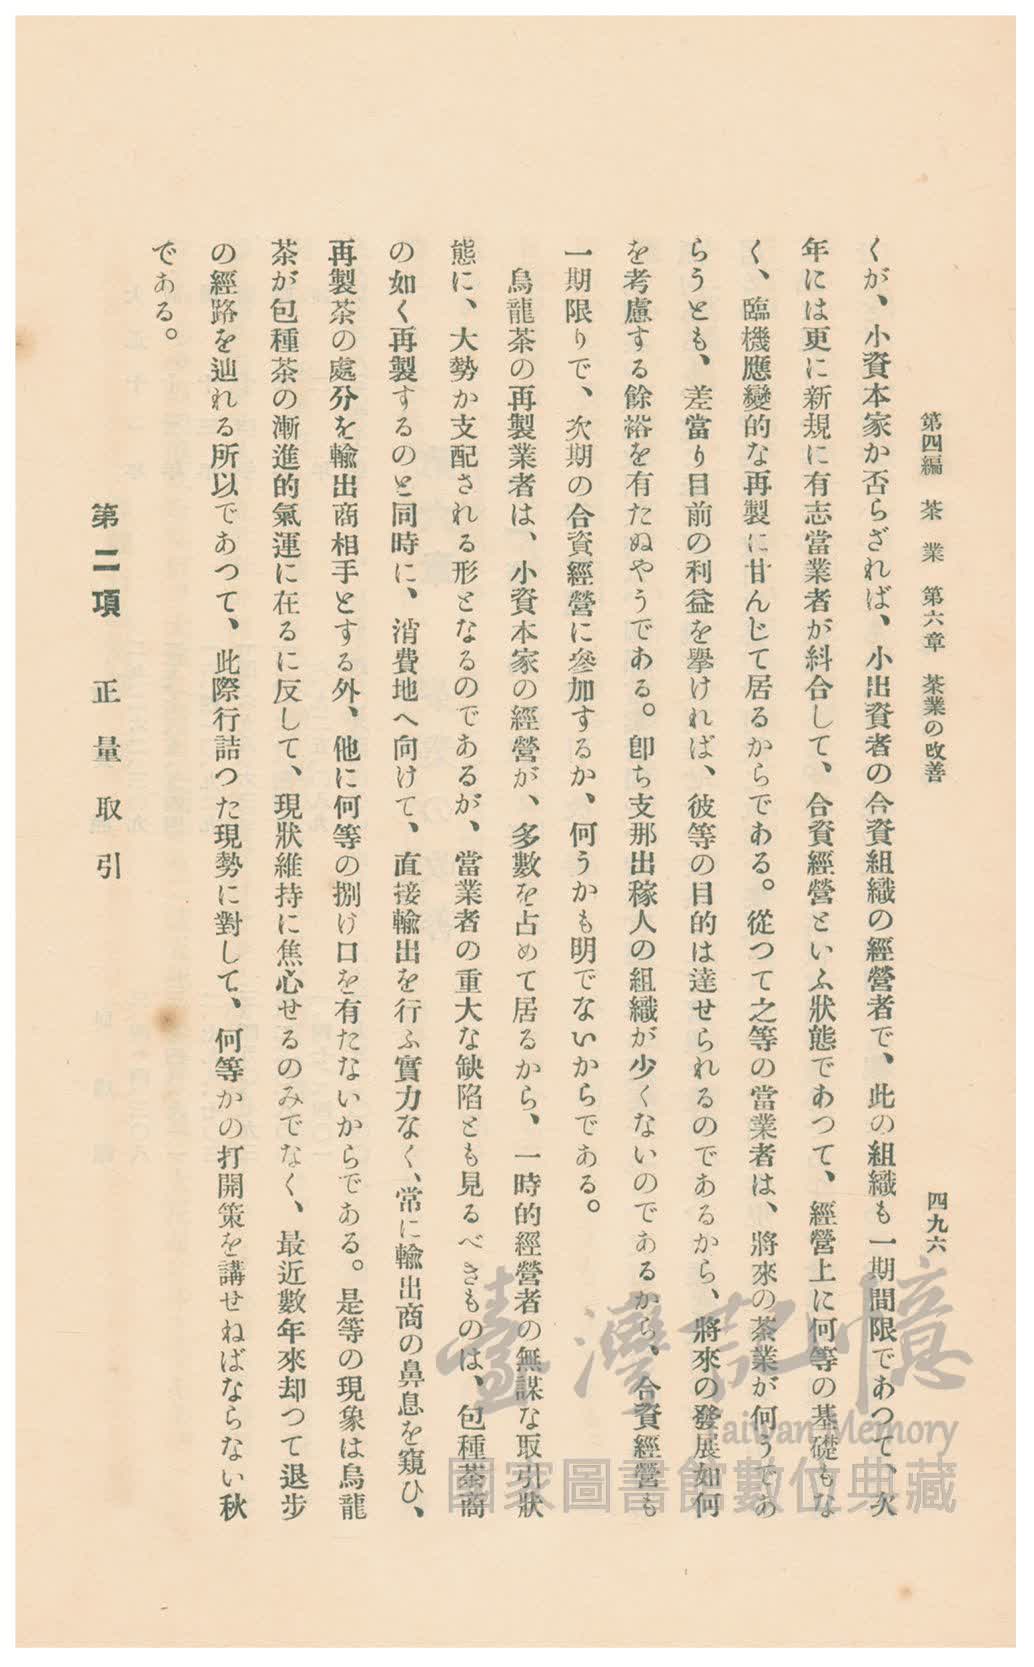 第四編　茶業　第六章　茶業の改善
四九六
くが、小資本家か否らざれば、小出資者の合資組織の經營者で、此の組織も一期間限であつて、次
年には更に新規に有志當業者が糾合して、合資經營といふ狀態であつて、經營上に何等の基礎もな
く、臨機應變的な再製に甘んじて居るからである。從つて之等の當業者は、將來の茶業が何うであ
らうとも、差當り目前の利益を擧ければ、彼等の目的は達せられるのであるから、將來の發展如何
を考慮する餘裕を有たぬやうである。卽ち支那出稼人の組織が少くないのであるから、合資經營も
一期限りで、次期の合資經營に參加するか、何うかも明でないからである。
烏龍茶の再製業者は、小資本家の經營が、多數を占めて居るから、一時的經營者の無謀な取引狀
態に、大勢か支配される形となるのであるが、當業者の重大な缺陷とも見るべきものは、包種茶商
の如く再製するのと同時に、消費地へ向けて、直接輸出を行ふ實力なく、常に輸出商の鼻息を窺ひ、
再製茶の處分を輸出商相手とする外、他に何等の捌け口を有たないからである。是等の現象は烏龍
茶が包種茶の漸進的氣運に在るに反して、現狀維持に焦心せるのみでなく、最近數年來却つて退步
の經路を辿れる所以であつて、此際行詰つた現勢に對して、何等かの打開策を講せねばならない秋
である。
第二項　正量取引
臺灣記憶
Taiwan Memory
國家圖書館數位典藏